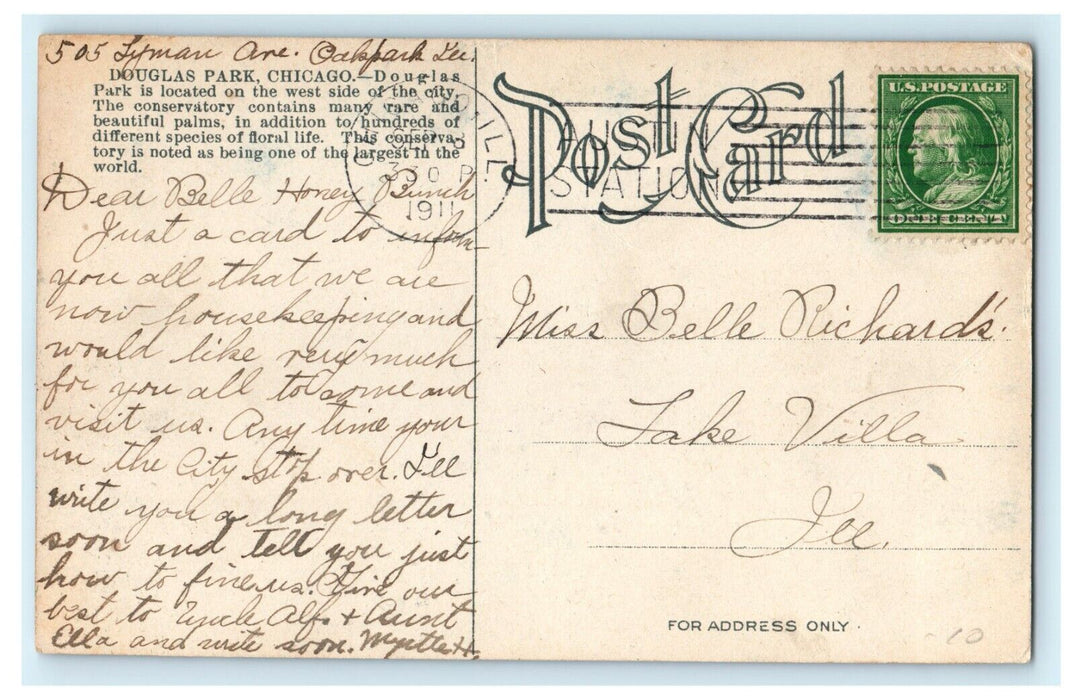 505 Lyman Ave. Oakpark Ill.
DOUGLAS PARK, CHICAGO.—Douglas
Park is located on the west side of the city.
The conservatory contains many rare and
beautiful palms, in addition to hundreds of
different species of floral life. This conserva-
tory is noted as being one of the largest in the
world.
Dear Belle Honey Bunch
Just a card to inform
you all that we are
now housekeeping and
would like very much
for you all to come and
visit us. Any time your
in the City stop over. I'll
write you a long letter
soon and tell you just
how to fine us. Give our
best to Uncle Alf. + Aunt
Ella and write soon. Myrtle H.
Post Card
ILL.
SEP
330 P
1911
AUSTIN
STATION
U.S. POSTAGE
ONE CENT
Miss Belle Richards.
Lake Villa
Ill.
FOR ADDRESS ONLY.
-10